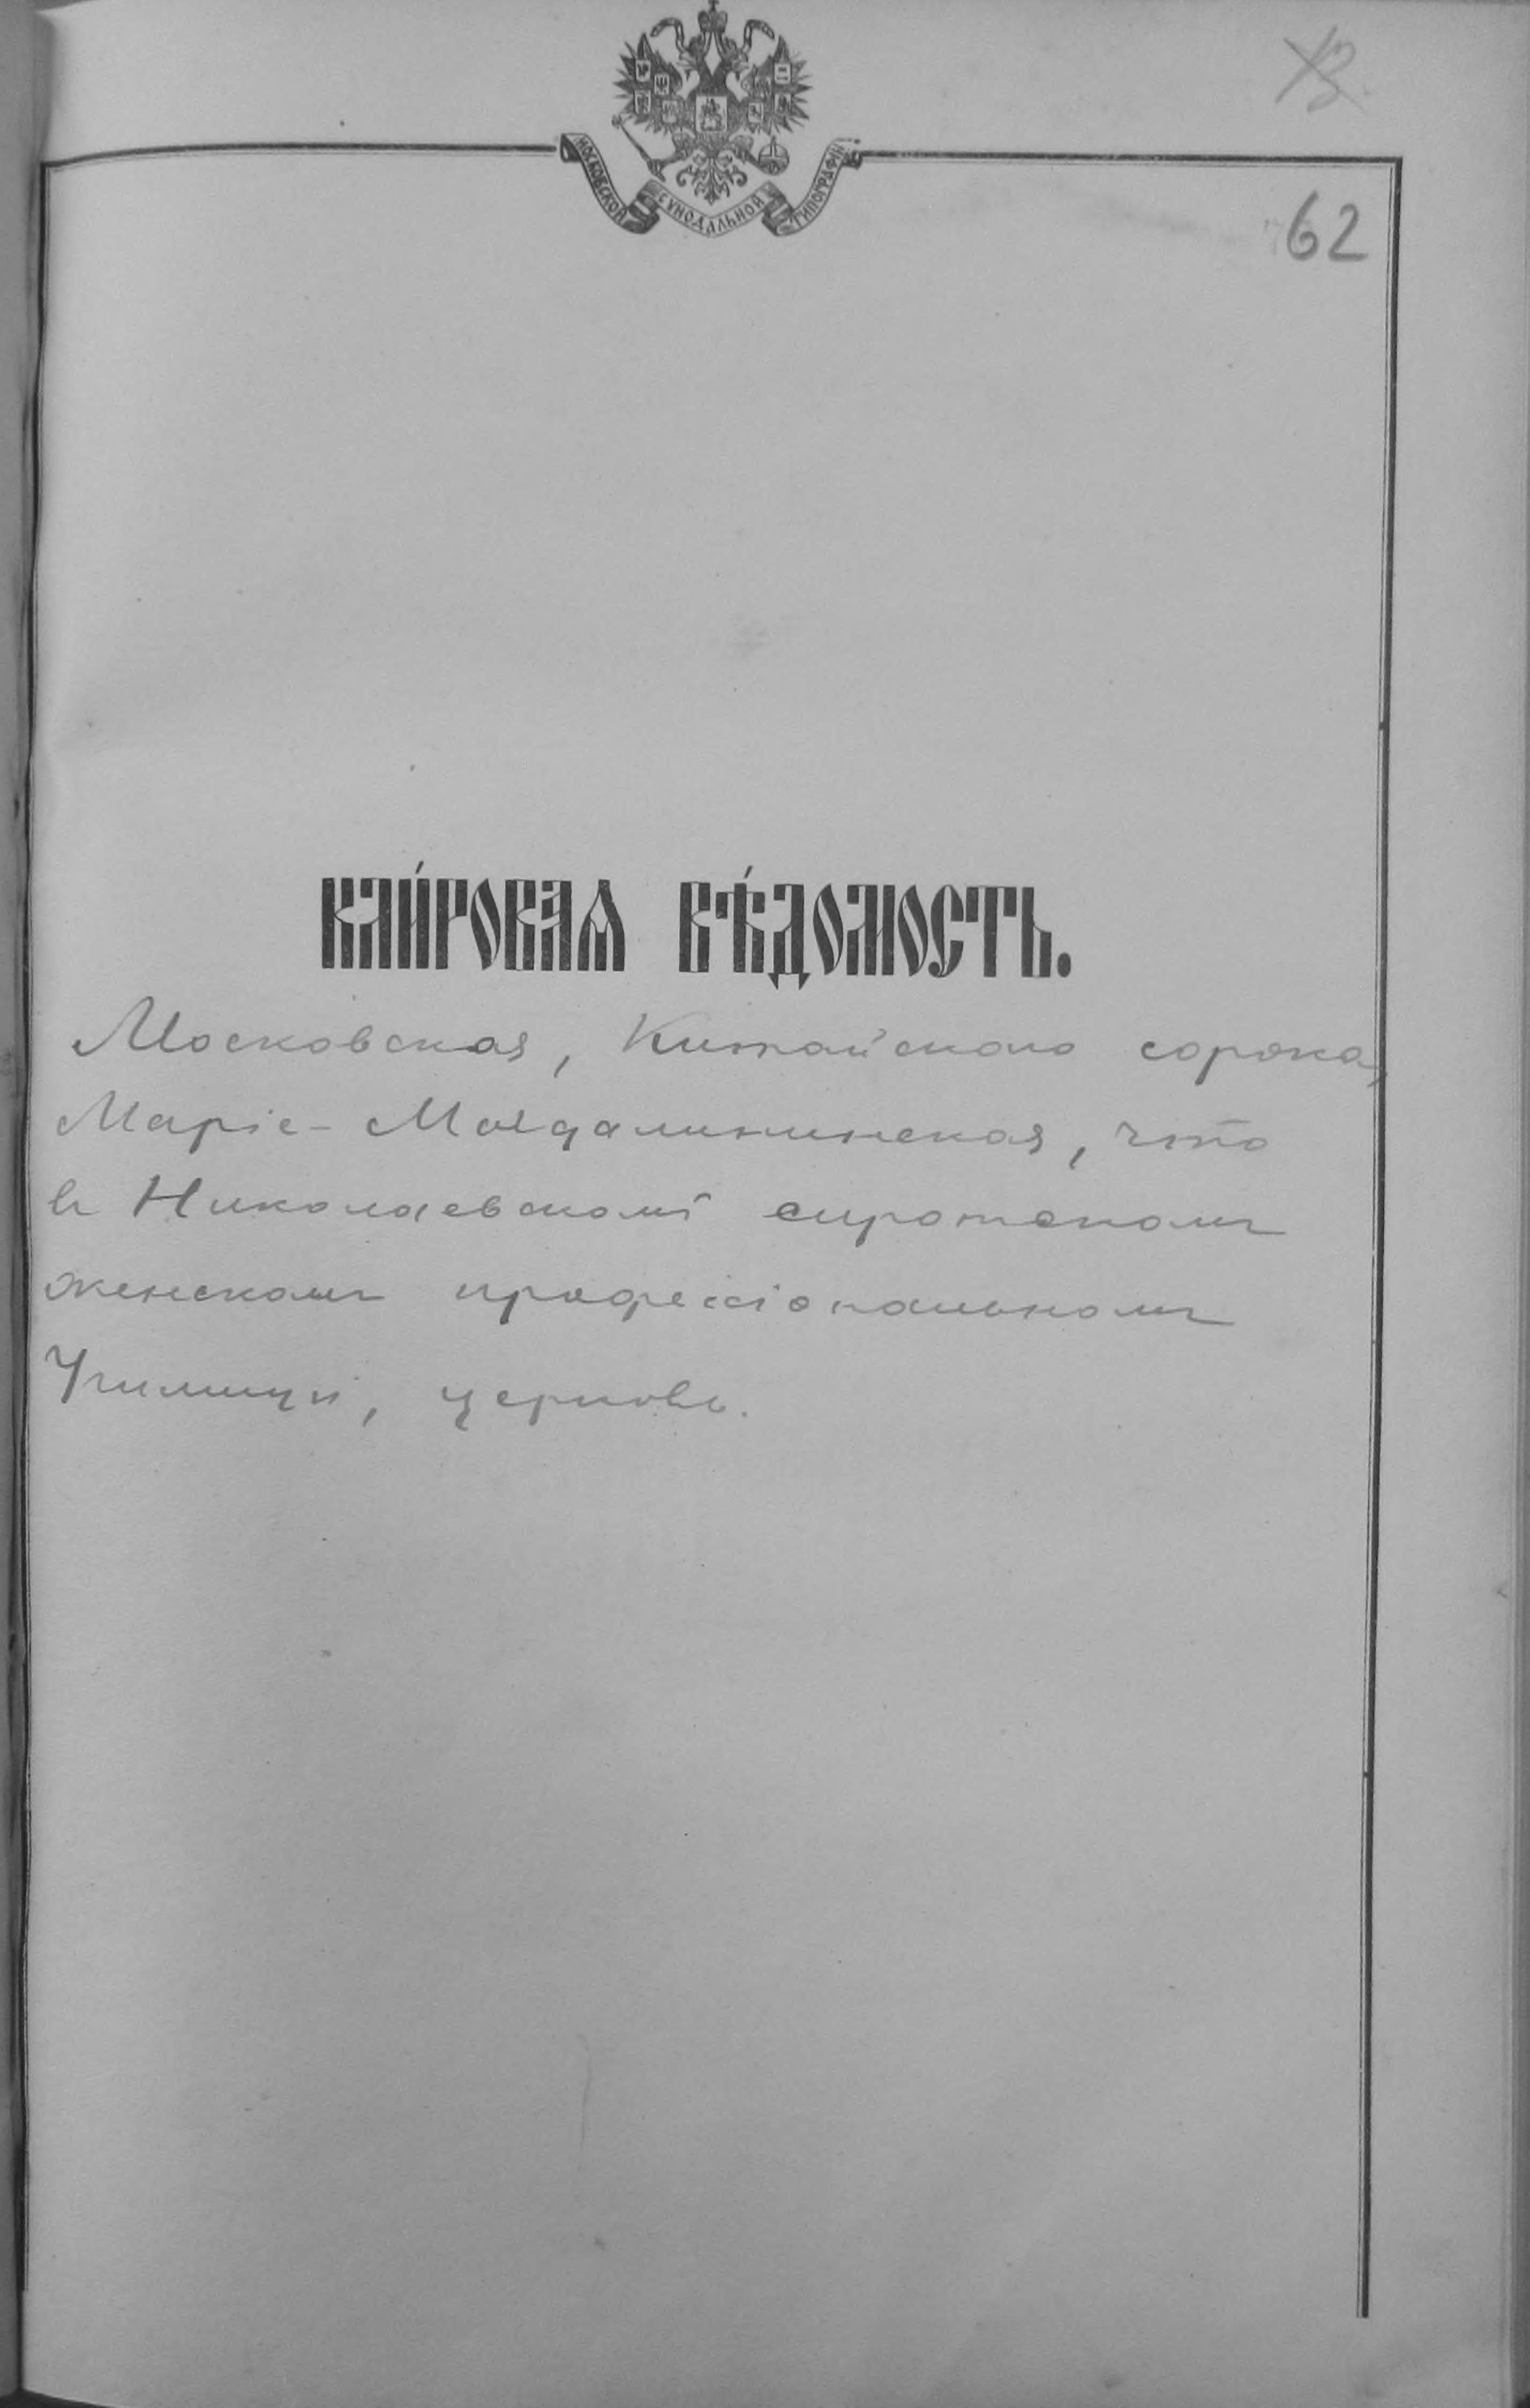 13
МОСКОВСКОЙ СУНОДАЛЬНОЙ ТИПОГРАФІИ
62
КЛИ́РОВАѦ ВѢ́ДОМОСТЬ.
Московская, Китайскаго сорока,
Маріе-Магдалининская, что
въ Николаевскомъ сиротскомъ
женскомъ профессіональномъ
Училищѣ, церковь.